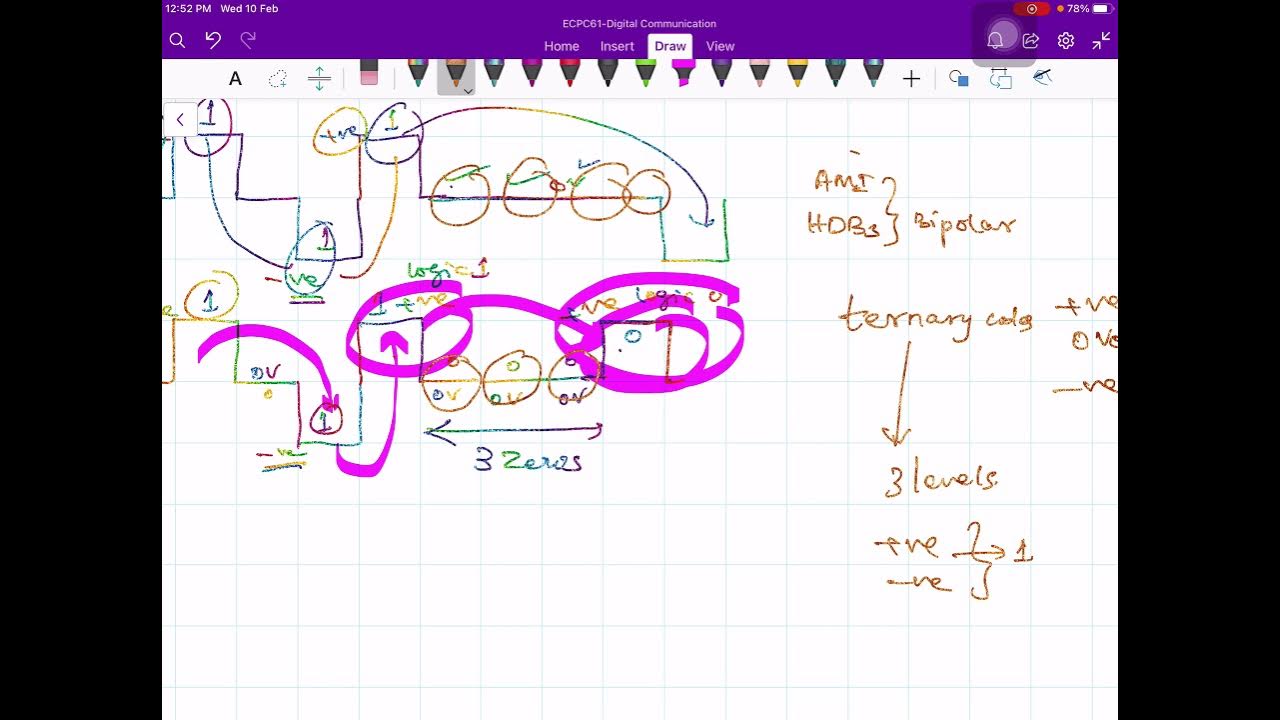 12:52 PM Wed 10 Feb
78%
ECPC61-Digital Communication
Home Insert Draw View
A
1
+ve 1
0
1
-ve
AMI
HDB3 } Bipolar
logic 1
1
1 +ve
+ve logic 0
0
0V
0
1
-ve
0 0 0
0V 0V 0V
3 Zeros
ternary code
+ve
0V
-ve
3 levels
+ve
-ve } → 1